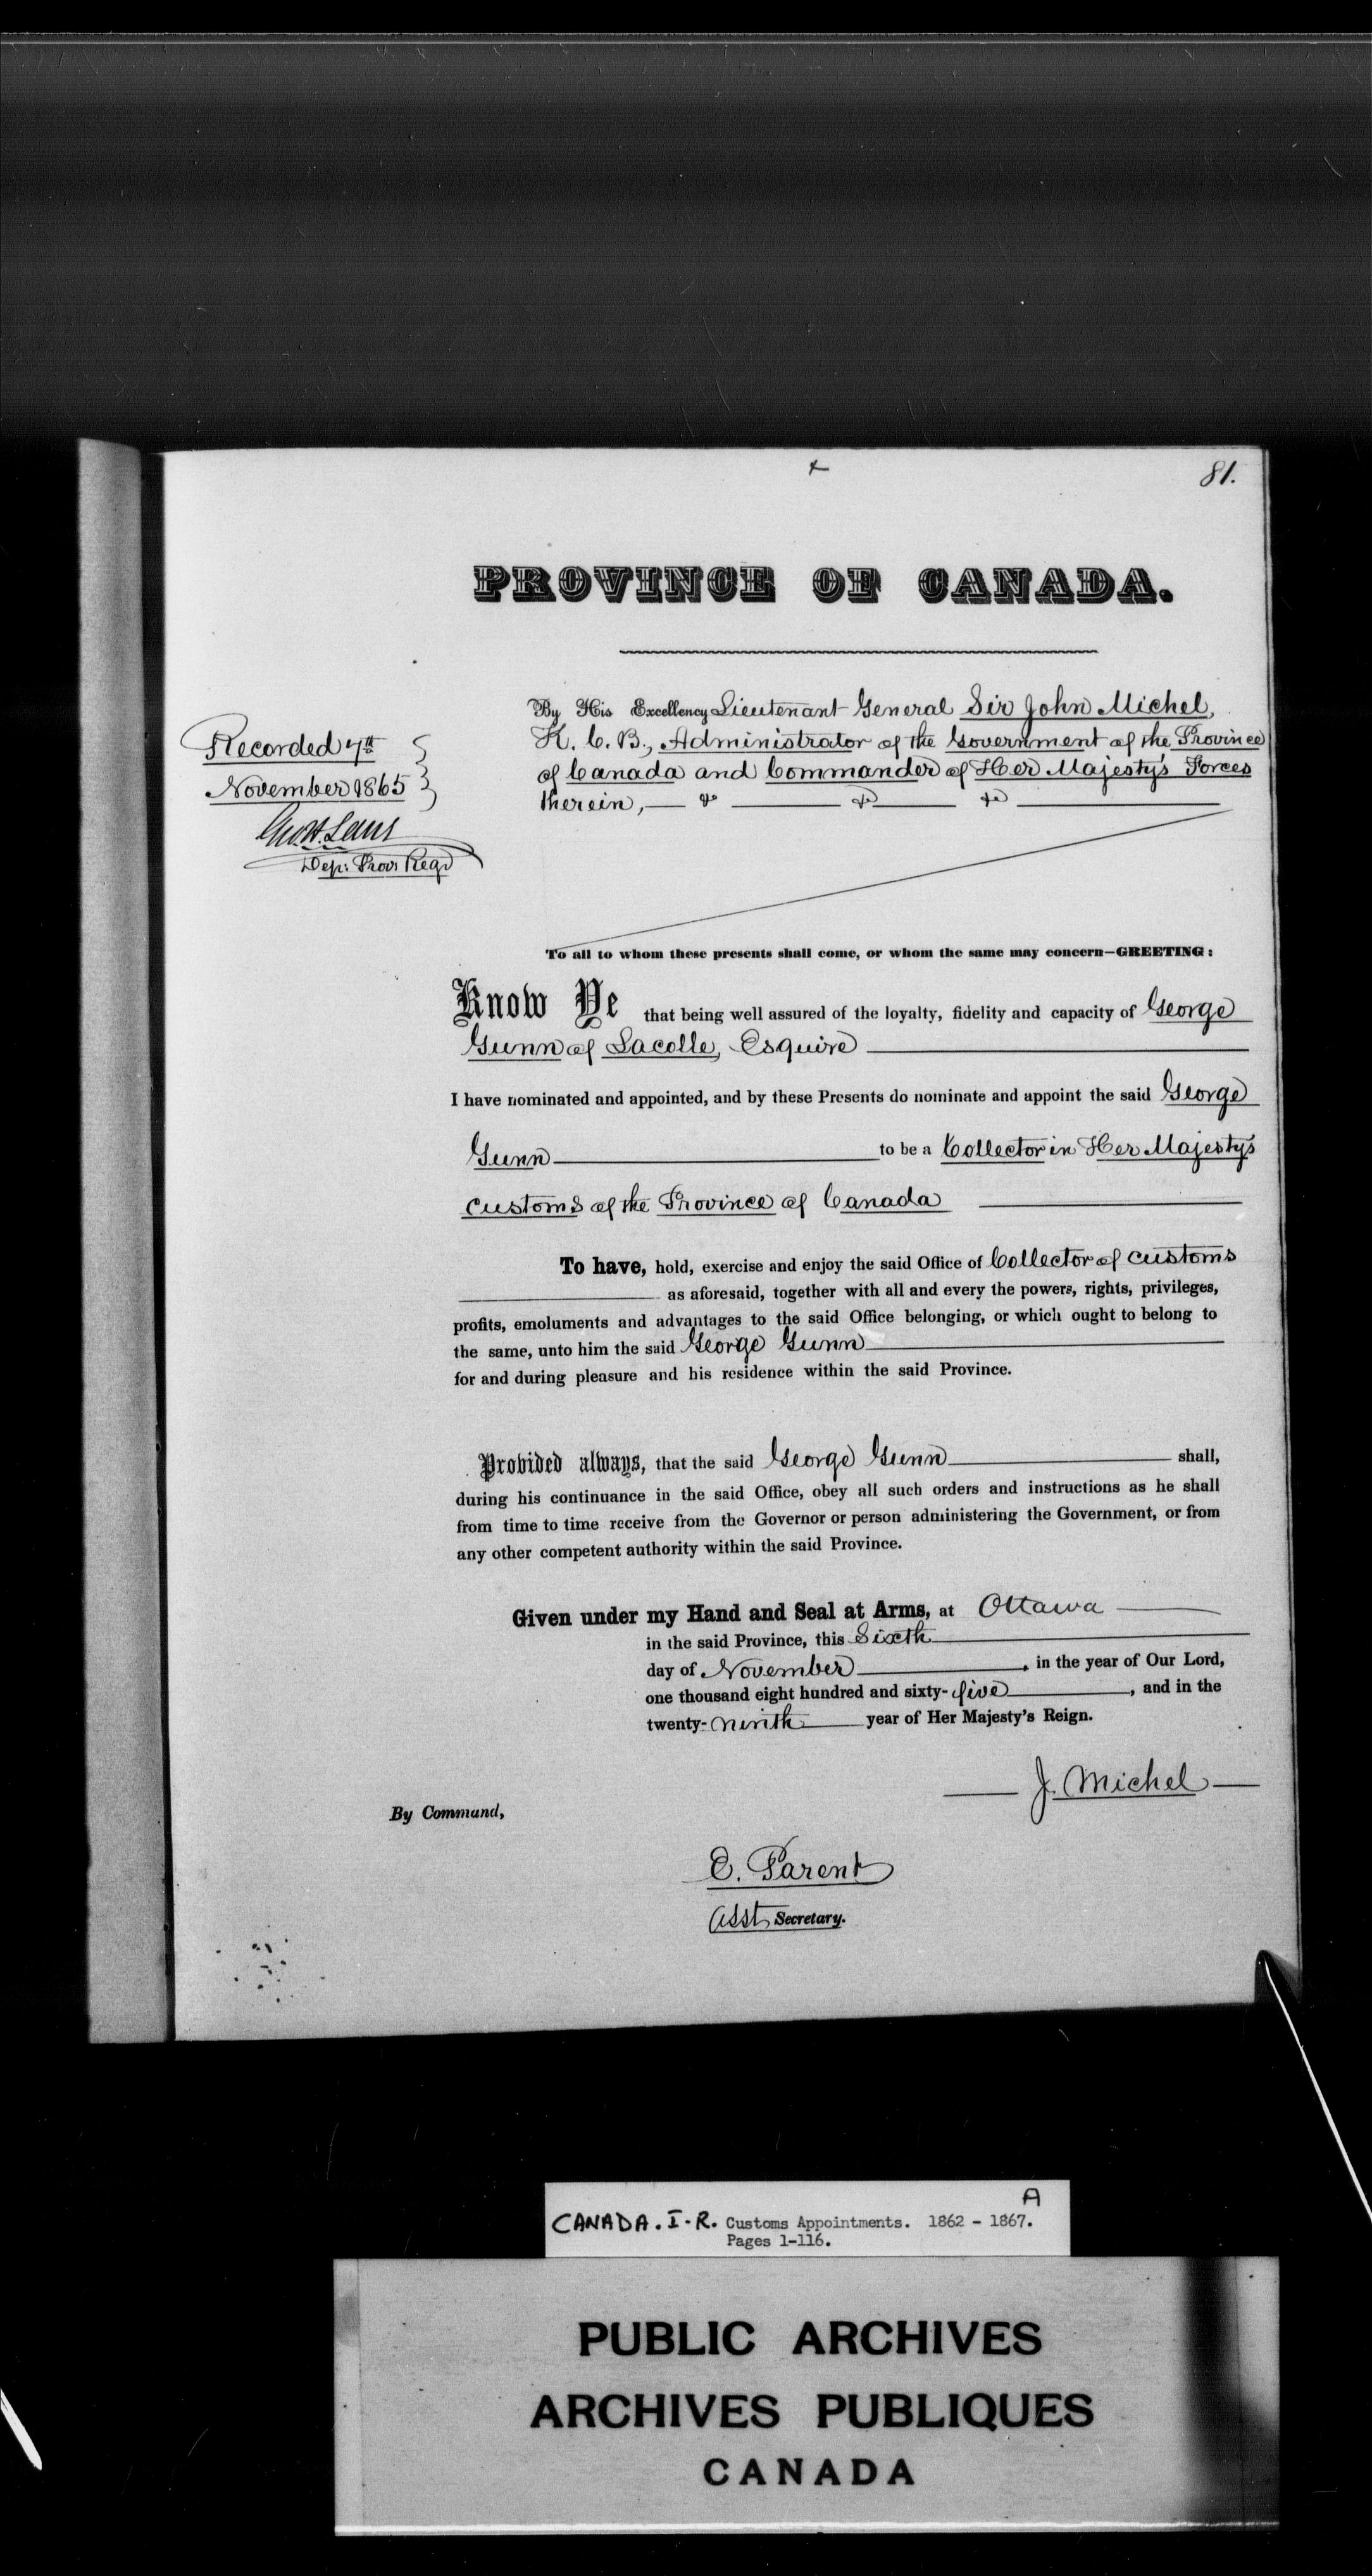 81.
PROVINCE OF CANADA.
By His Excellency Lieutenant General Sir John Michel,
K. C. B., Administrator of the Government of the Province
of Canada and Commander of Her Majesty's Forces
therein, — &c — &c — &c —
Recorded 7th
November 1865
Geo. H. Lane
Dep: Prov: Regr
To all to whom these presents shall come, or whom the same may concern—GREETING:
Know Ye that being well assured of the loyalty, fidelity and capacity of George
Gunn of Lacolle, Esquire
I have nominated and appointed, and by these Presents do nominate and appoint the said George
Gunn to be a Collector in Her Majesty's
Customs of the Province of Canada
To have, hold, exercise and enjoy the said Office of Collector of Customs
as aforesaid, together with all and every the powers, rights, privileges,
profits, emoluments and advantages to the said Office belonging, or which ought to belong to
the same, unto him the said George Gunn
for and during pleasure and his residence within the said Province.
Provided always, that the said George Gunn shall,
during his continuance in the said Office, obey all such orders and instructions as he shall
from time to time receive from the Governor or person administering the Government, or from
any other competent authority within the said Province.
Given under my Hand and Seal at Arms, at Ottawa
in the said Province, this Sixth
day of November, in the year of Our Lord,
one thousand eight hundred and sixty-five, and in the
twenty-ninth year of Her Majesty's Reign.
J. Michel
By Command,
E. Parent
Asst Secretary.
A
CANADA. I-R. Customs Appointments. 1862 - 1867.
Pages 1-116.
PUBLIC ARCHIVES
ARCHIVES PUBLIQUES
CANADA